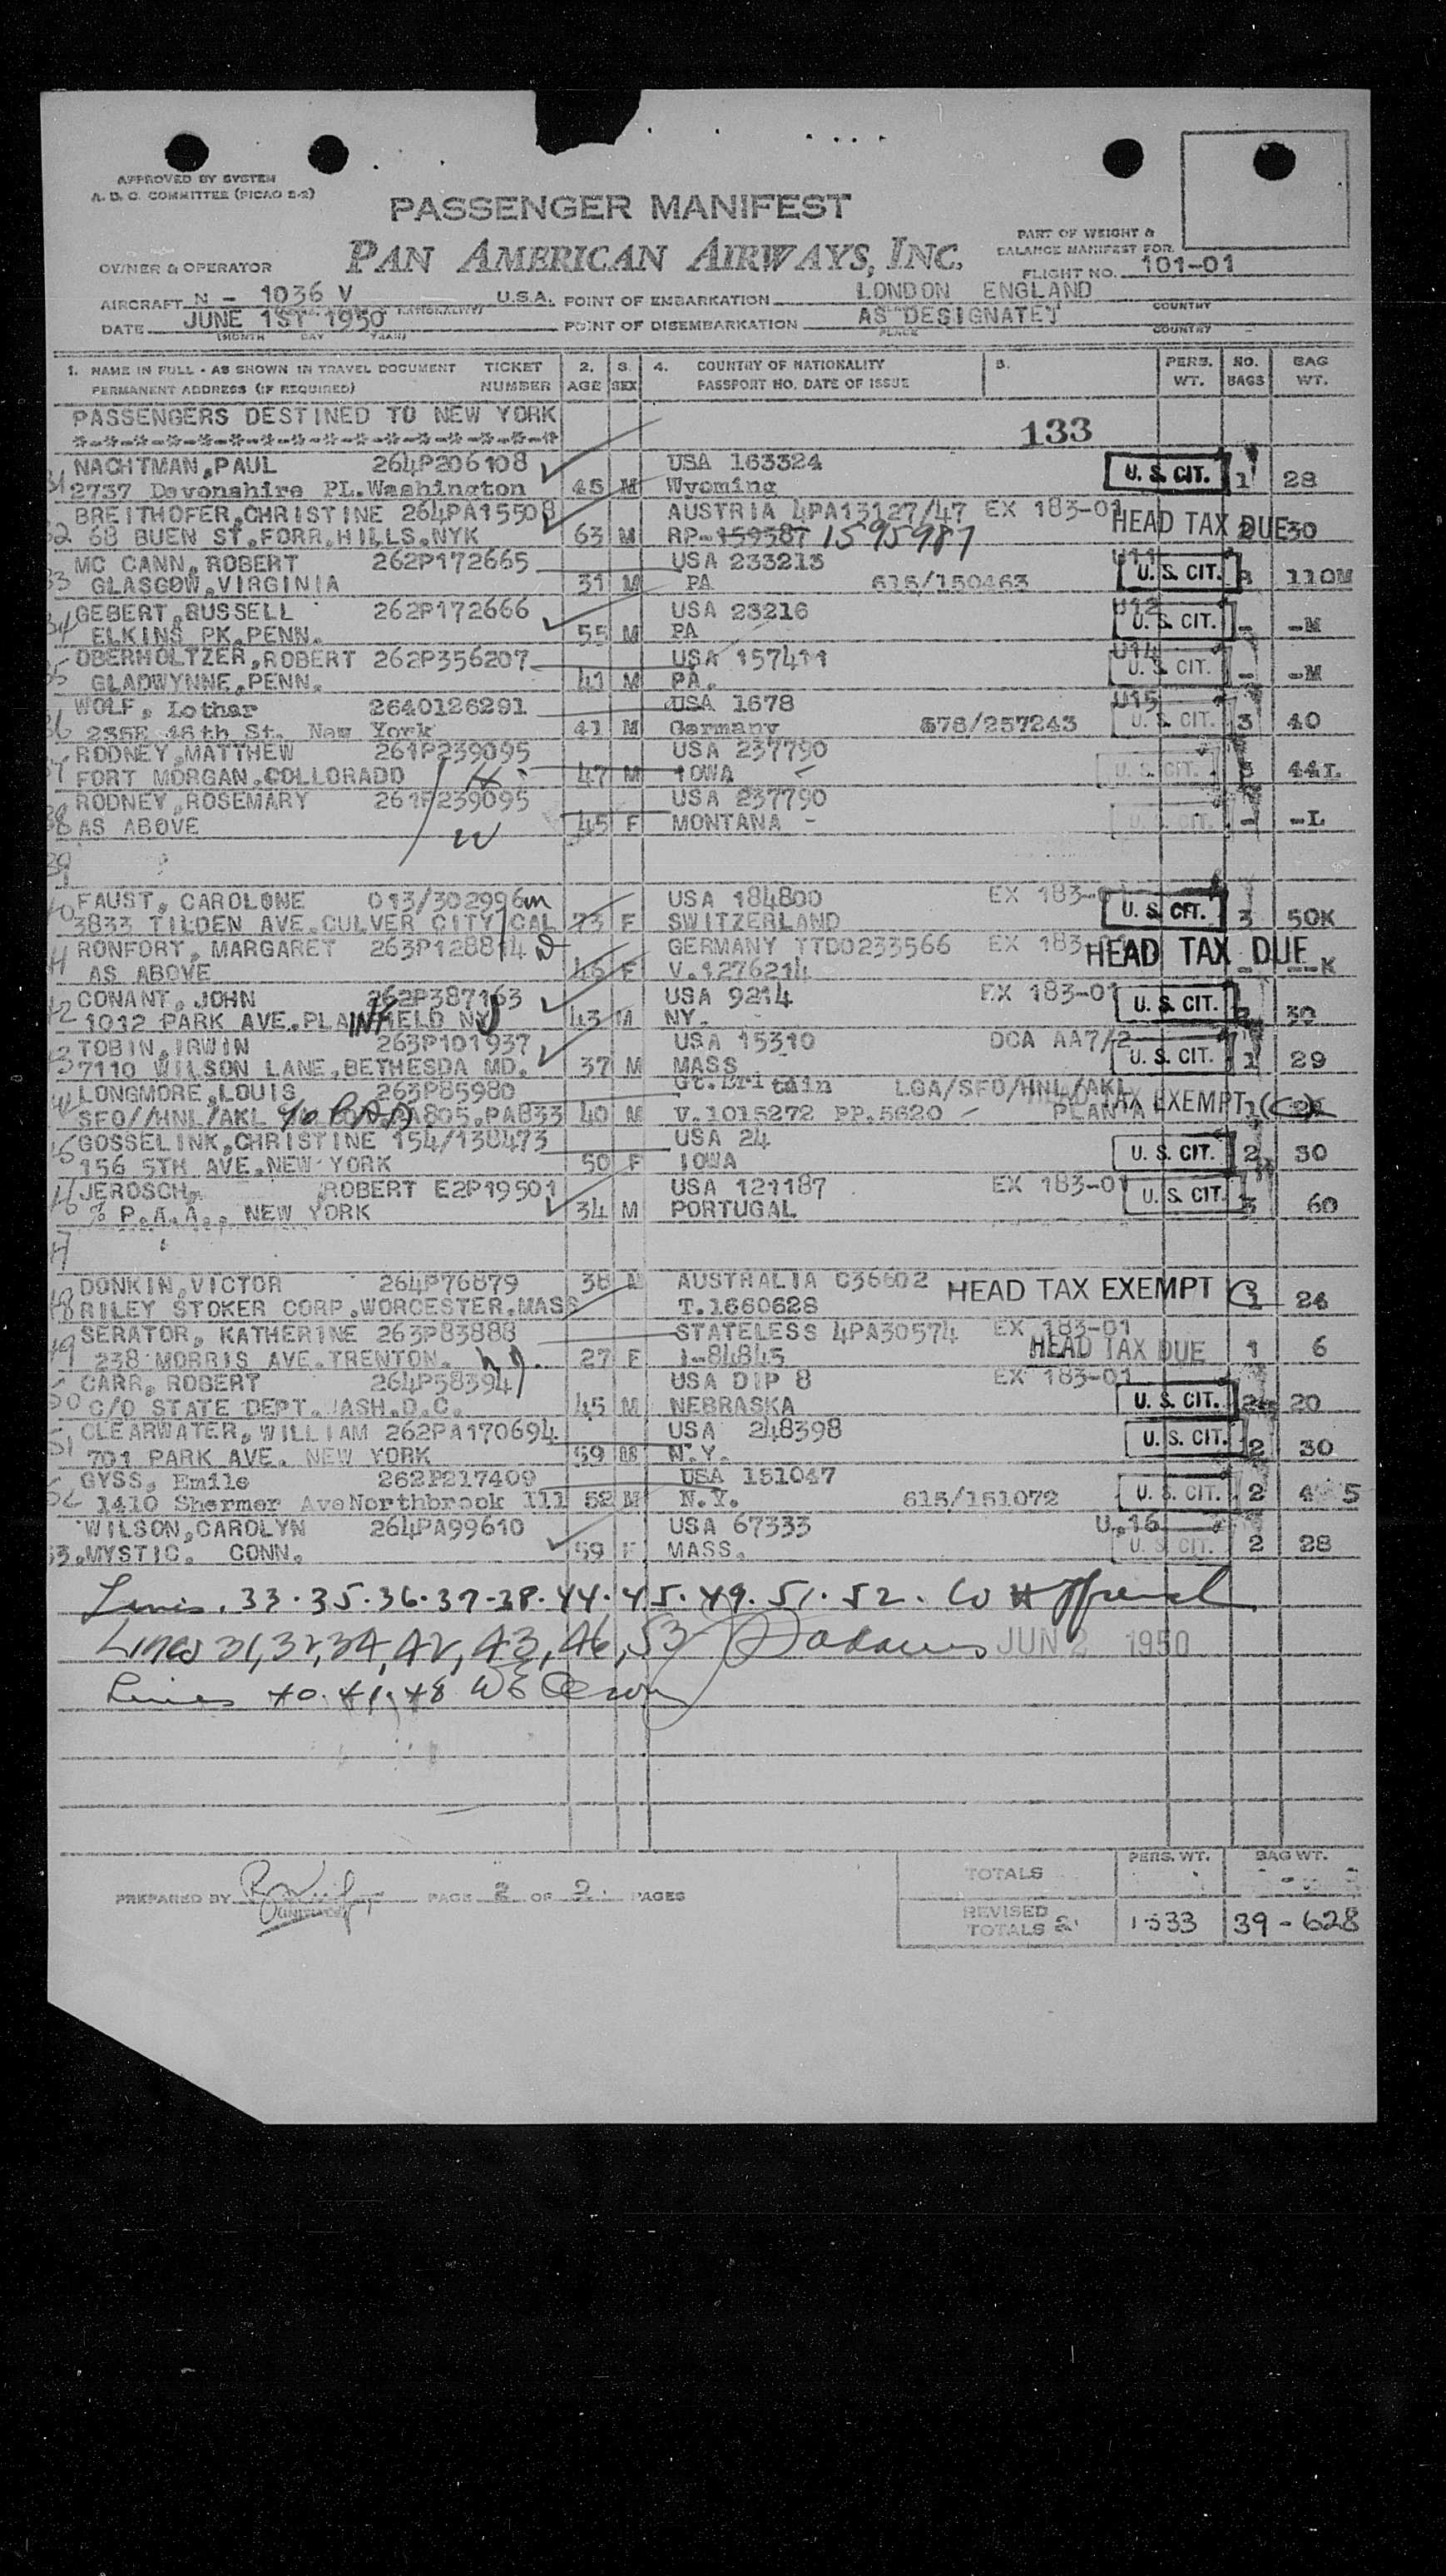 APPROVED BY SYSTEM
A. D. C. COMMITTEE (PICAO S-2)
PASSENGER MANIFEST
PART OF WEIGHT &
BALANCE MANIFEST FOR
OWNER & OPERATOR PAN AMERICAN AIRWAYS, INC. FLIGHT NO. 101-01
AIRCRAFT N - 1036 V U.S.A. POINT OF EMBARKATION LONDON ENGLAND COUNTRY
DATE JUNE 1ST 1950 POINT OF DISEMBARKATION AS DESIGNATET COUNTRY
(MONTH DAY YEAR) PLACE
1. NAME IN FULL - AS SHOWN IN TRAVEL DOCUMENT TICKET 2. 3. 4. COUNTRY OF NATIONALITY 5. PERS. NO. BAG
PERMANENT ADDRESS (IF REQUIRED) NUMBER AGE SEX PASSPORT NO. DATE OF ISSUE WT. BAGS WT.
PASSENGERS DESTINED TO NEW YORK
*-*-*-*-*-*-*-*-*-*-*-*-*-*-*-* 133
NACHTMAN,PAUL 264P206108 USA 163324
31 2737 Devonshire PL.Washington 45 M Wyoming U. S. CIT. 1 28
BREITHOFER,CHRISTINE 264PA15508 AUSTRIA 4PA13127/47 EX 183-01
32 68 BUEN ST.FORR.HILLS.NYK 63 M RP-159387 1595987 HEAD TAX DUE 2 30
MC CANN,ROBERT 262P172665 USA 233213 U11
33 GLASGOW,VIRGINIA 31 M PA 615/150463 U. S. CIT. 3 110M
GEBERT,RUSSELL 262P172666 USA 23216 U12
34 ELKINS PK.PENN. 55 M PA U. S. CIT. - -M
OBERHOLTZER,ROBERT 262P356207 USA 157411 U14
35 GLADWYNNE,PENN. 41 M PA. U. S. CIT. - -M
WOLF, Lothar 2640126291 USA 1678 U15
36 235E 46th St. New York 41 M Germany 678/257243 U. S. CIT. 3 40
RODNEY,MATTHEW 261P239095 USA 237790
37 FORT MORGAN.COLLORADO H 47 M IOWA U. S. CIT. 3 44L
RODNEY,ROSEMARY 261P239095 USA 237790
38 AS ABOVE W 45 F MONTANA - U. S. CIT. - -L
39
FAUST, CAROLONE 013/302996 m USA 184800 EX 183-01
40 3833 TILDEN AVE.CULVER CITY CAL 73 F SWITZERLAND U. S. CIT. 3 50K
RONFORT, MARGARET 263P128814 D GERMANY TTD0233566 EX 183-01
41 AS ABOVE 46 F V.1276214 HEAD TAX DUE - --K
CONANT, JOHN 262P387163 USA 9214 EX 183-01
42 1012 PARK AVE.PLAINFIELD NJ 43 M NY. U. S. CIT. 2 30
TOBIN,IRWIN 263P101937 USA 15310 DCA AA7/2
43 7110 WILSON LANE,BETHESDA MD. 37 M MASS U. S. CIT. 1 29
LONGMORE,LOUIS 263P85980 Gt.Britain LGA/SFO/HNL/AKL
44 SFO//HNL/AKL 805.PA833 40 M V.1015272 PP.5620 - TAX EXEMPT (C)
GOSSELINK,CHRISTINE 154/138473 USA 24
45 156 5TH AVE.NEW YORK 50 F IOWA U. S. CIT. 2 30
JEROSCH, ,ROBERT E2P19501 USA 121187 EX 183-01
46 % P.A.A., NEW YORK 34 M PORTUGAL U. S. CIT. 3 60
47
DONKIN,VICTOR 264P76879 38 M AUSTRALIA C36602 HEAD TAX EXEMPT C
48 RILEY STOKER CORP.WORCESTER.MASS T.1660628 1 26
SERATOR, KATHERINE 263P83888 STATELESS 4PA30574 EX 183-01
49 238 MORRIS AVE.TRENTON. N.J. 27 F I-84845 HEAD TAX DUE 1 6
CARR, ROBERT 264P58394 USA DIP 8 EX 183-01
50 C/O STATE DEPT.WASH.D.C. 45 M NEBRASKA U. S. CIT. 2 20
CLEARWATER, WILLIAM 262PA170694 USA 248398
51 701 PARK AVE. NEW YORK 59 M N.Y. U. S. CIT. 2 30
GYSS, Emile 262P217409 USA 151047
52 1410 Shermer AveNorthbrook Ill 52 M N.Y. 615/151072 U. S. CIT. 2 4 5
WILSON,CAROLYN 264PA99610 USA 67333 U.16
53.MYSTIC. CONN. 59 F MASS. U. S. CIT. 2 28
Lines. 33.35.36.37.38.44.45.49.51.52.
Lines 31,32,34,42,43,46,53 JUN 2 1950
Lines 40.41.48
PERS. WT. BAG WT.
TOTALS
PREPARED BY (INITIALS) PAGE 2 OF 2. PAGES
REVISED
TOTALS 1533 39-628